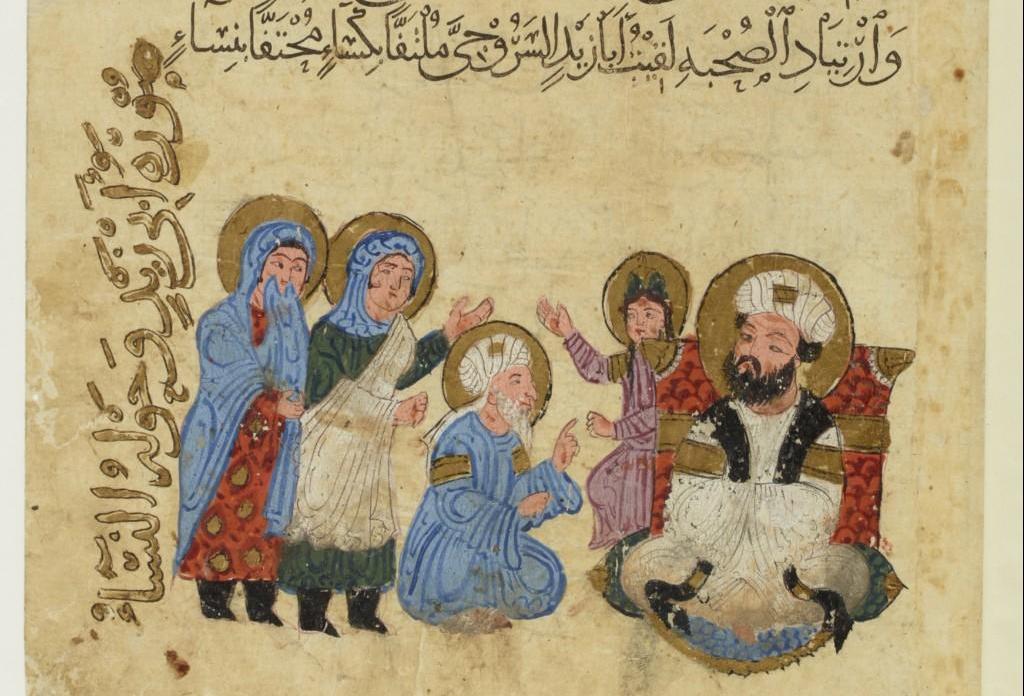 وَارْتِيَادِ الصُّحْبَهِ لَقِيتُ أَبَا زَيْدٍ السَّرُوجِيَّ مُلْتَفًّا بِكِسَاءٍ مُحْتَفًّا بِنِسَاءٍ
صورة ابي زيد وحوله النساء